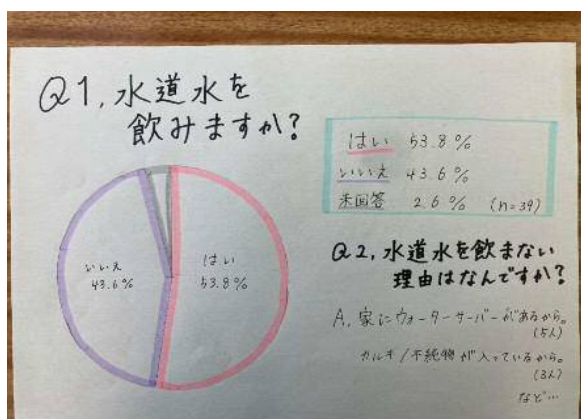 Q1, 水道水を
飲みますか?
はい 53.8%
いいえ 43.6%
未回答 2.6% (n=39)
いいえ
43.6%
はい
53.8%
Q2, 水道水を飲まない
理由はなんですか?
A, 家にウォーターサーバーがあるから。
(5人)
カルキ/不純物が入っているから。
(3人)
など…